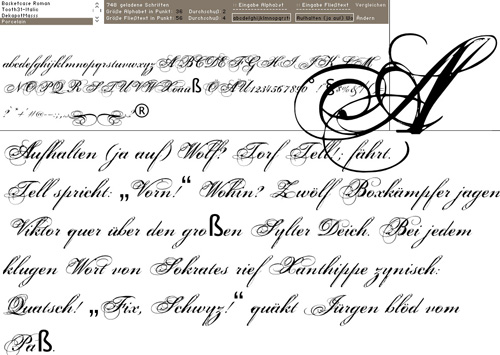 Basketcase Roman
Tooth31-Italic
DekoportMager
Porcelain
746 geladene Schriften
Größe Alphabet in Punkt: 36 Durchschuß:
Größe Fließtext in Punkt: 56 Durchschuß: 4
Eingabe Alphabet Eingabe Fließtext Vergleichen
abcdefghijklmnopqrst Aufhalten (ja auf) Ändern
abcdefghijklmnopqrstuvwxyz ABCDEFGHIJKLM
NOPQRSTUVWXYZäöüßÄÖÜ1234567890
®
A
Aufhalten (ja auf) Wolf? Torf Tell!; fährt.
Tell spricht: „Vorn!“ Wohin? Zwölf Boxkämpfer jagen
Viktor quer über den großen Sylter Deich. Bei jedem
klugen Wort von Sokrates rief Xanthippe zynisch:
Quatsch! „Fix, Schwyz!“ quäkt Jürgen blöd vom
Paß.